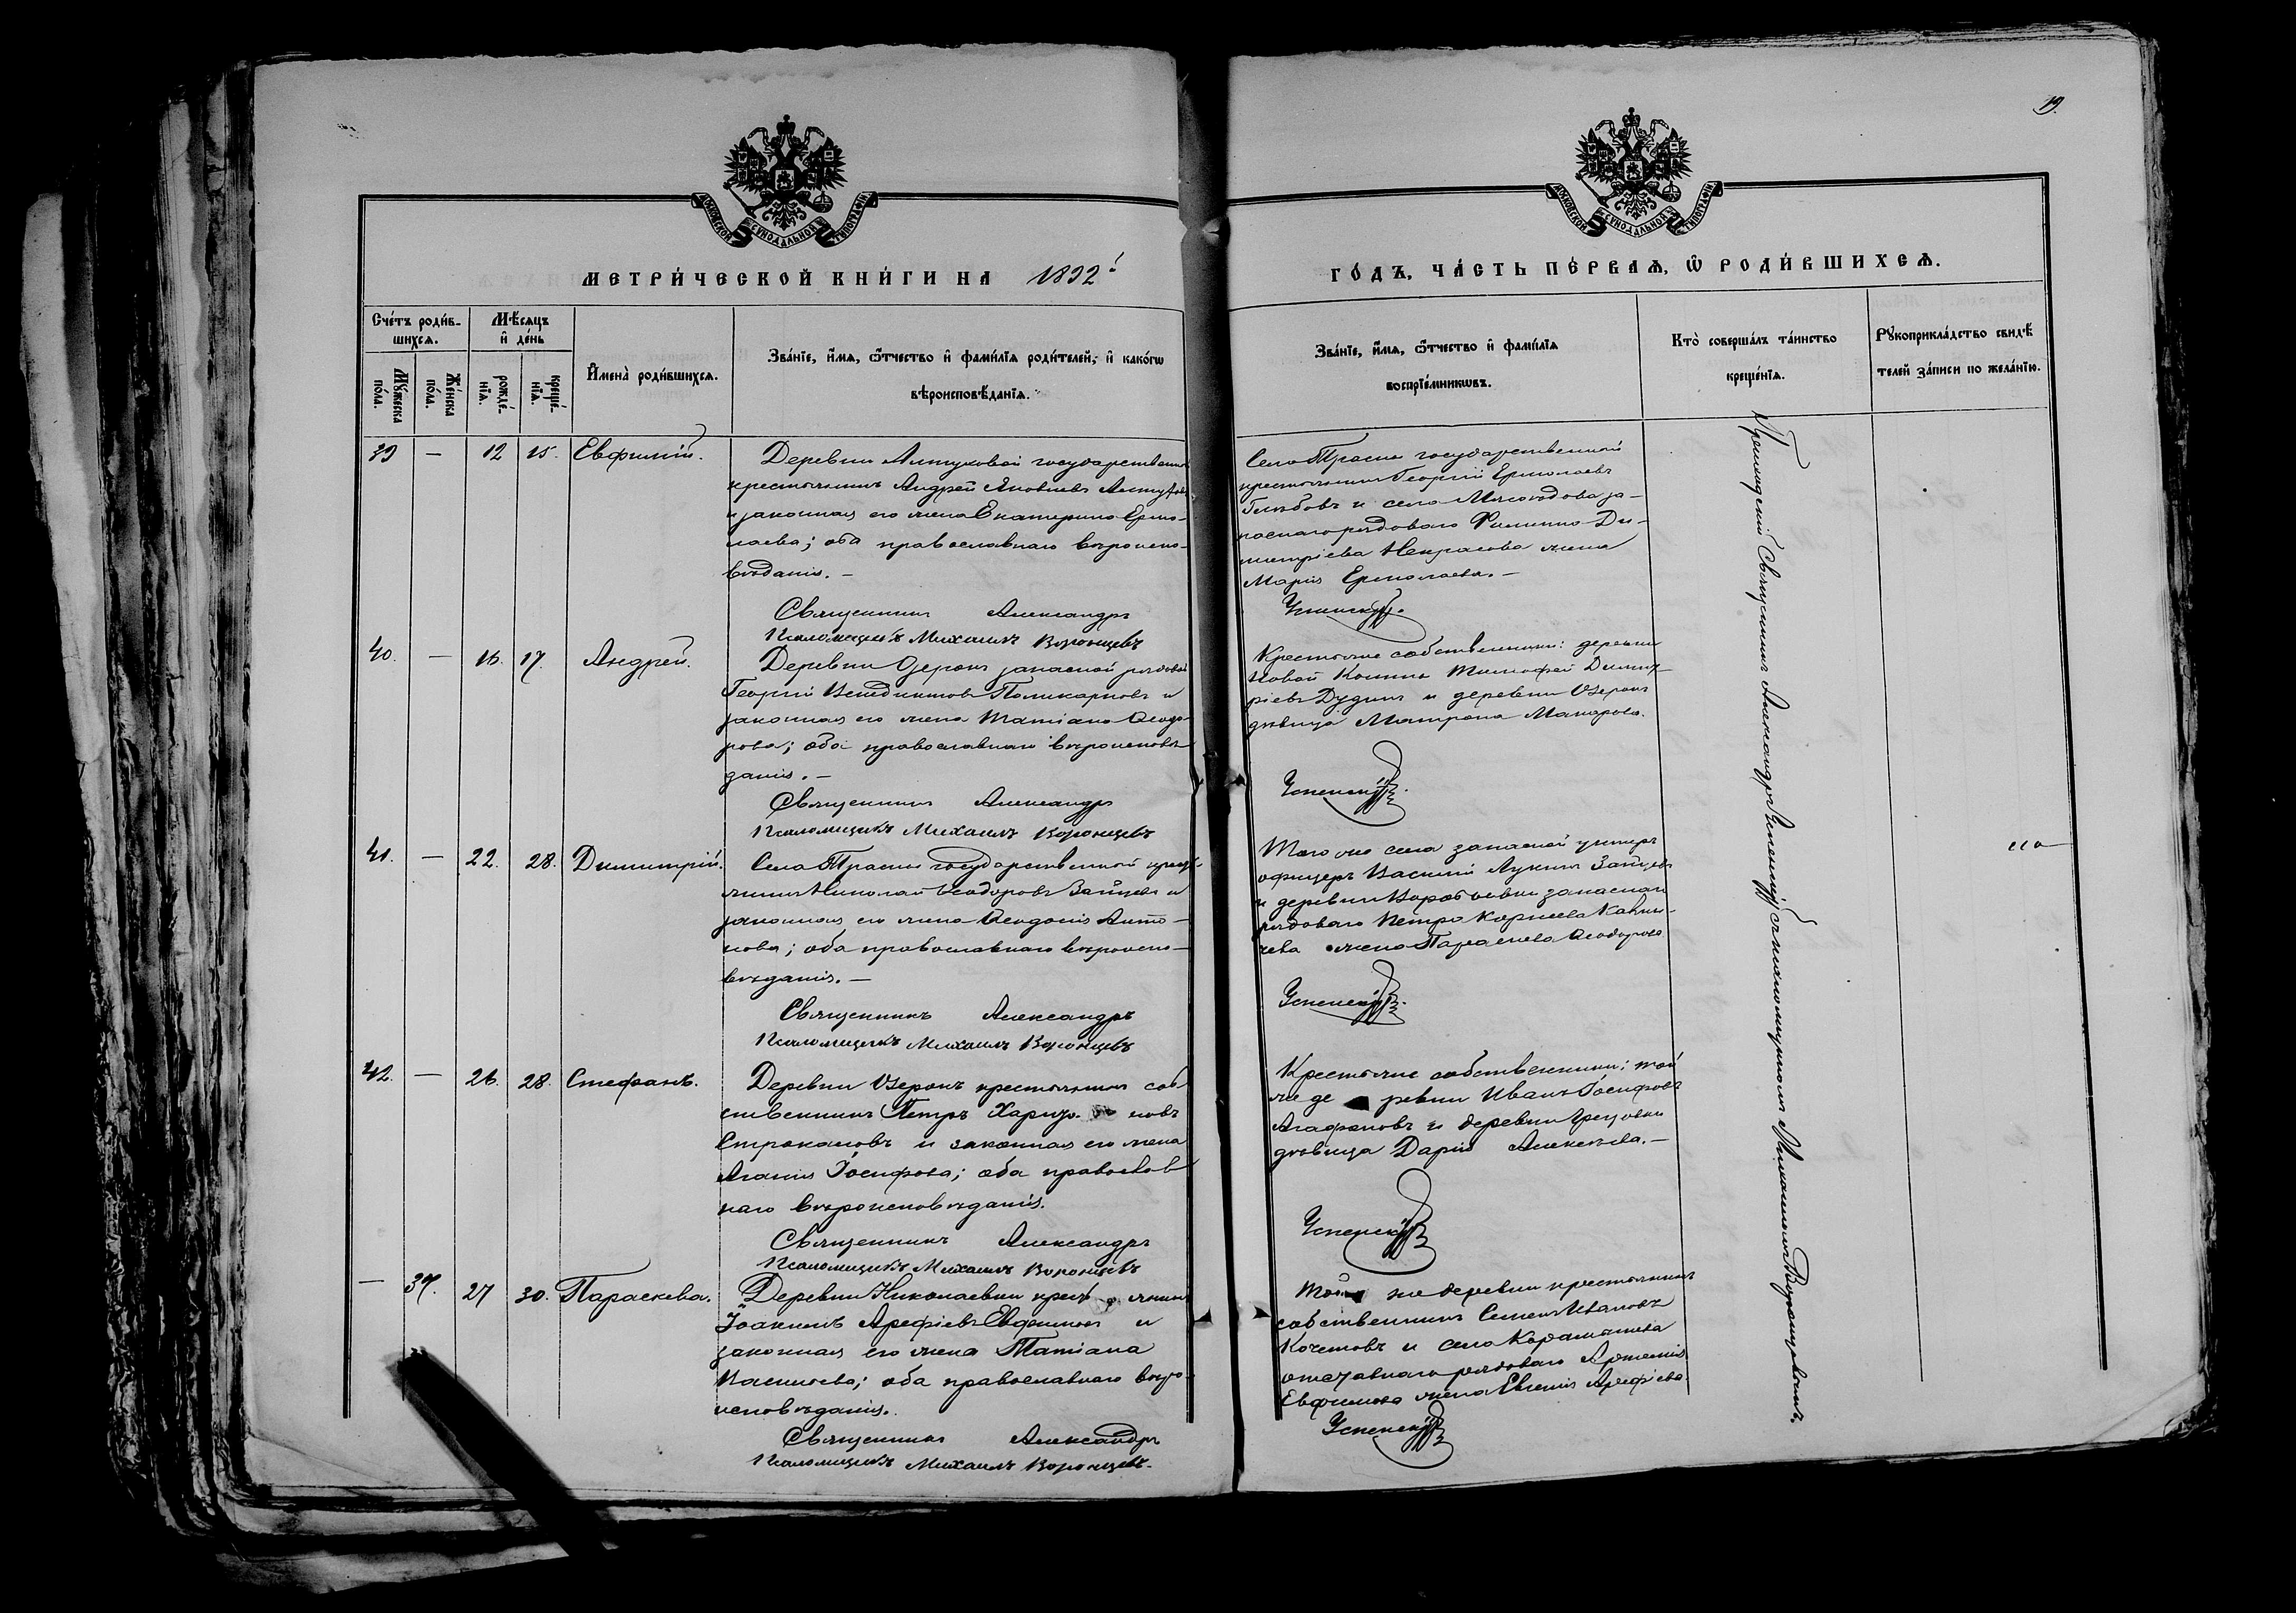 19.
МОСКОВСКОЙ СѴНОДАЛЬНОЙ ТИПОГРАФІИ
МОСКОВСКОЙ СѴНОДАЛЬНОЙ ТИПОГРАФІИ
МЕТРИ́ЧЕСКОЙ КНИ́ГИ НА 1892
ГО́ДЪ, ЧА́СТЬ ПЕ́РВАЯ, Ѿ РОДИ́ВШИХСЯ.
Сче́тъ роди́в-
шихся.
Мѣ́сяцъ
и́ де́нь
Му́жеска
по́ла.
Же́нска
по́ла.
рожде́-
нїя.
креще́-
нїя.
И҆мена̀ роди́вшихся.
Зва́нїе, и҆́мя, ѻ҆́тчество и҆ фами́лїя роди́телей, и҆ како́гѡ
вѣроисповѣ́данїя.
Зва́нїе, и҆́мя, ѻ҆́тчество и҆ фами́лїя
воспрїе́мникѡвъ.
Кто̀ соверша́лъ та́инство
креще́нїя.
Рꙋкоприкла́дство свидѣ́
телей за́писи по жела́нїю.
39 — 12 15. Евфимій.
Деревни государственный
крестьянинъ Андрей Яковлевъ
и законная его жена Екатерина Ермо-
лаева; оба православнаго вѣроиспо-
вѣданія. —
Священникъ Александръ
Псаломщикъ Михаилъ Воронцевъ
Села государственной
крестьянинъ Георгій Ермолаевъ
Глѣбовъ и села Мясоѣдова за-
паснаго рядоваго Филиппа Ди-
митріева Некрасова жена
Марія Ермолаева. —
Успенскій.
40. — 16. 17. Андрей.
Деревни Озерокъ запасной рядовой
Георгій Венедиктовъ Поликарповъ и
законная его жена Татіана Ѳеодо-
рова; оба православнаго вѣроисповѣ
данія. —
Священникъ Александръ
Псаломщикъ Михаилъ Воронцевъ
Крестьяне собственники: деревни
Новой Тимофей Димит-
ріевъ Дудинъ и деревни Озерокъ
дѣвица Матрона Макарова.
Успенскій.
41. — 22. 28. Димитрій.
Села государственной
Николай Ѳеодоровъ Зайцевъ и
законная его жена Ѳеодосія Анто-
нова; оба православнаго вѣроиспо-
вѣданія. —
Священникъ Александръ
Псаломщикъ Михаилъ Воронцевъ
Того же села запасной унтеръ
офицеръ Василій Лукинъ Зайцевъ
и деревни Воробьевки запаснаго
рядоваго Петра Корнеева
жена Параскева Ѳеодорова
Успенскій.
42. — 26. 28. Стефанъ.
Деревни Озерокъ крестьянинъ соб
ственникъ Петръ новъ
Строкановъ и законная его жена
Агапія Іосифова; оба православ
наго вѣроисповѣданія.
Священникъ Александръ
Псаломщикъ Михаилъ Воронцевъ
Крестьяне собственники: той
же де ревни Иванъ Іосифовъ
Агафоновъ и деревни Грецовки
дѣвица Дарія Алексѣева. —
Успенскій
— 37. 27 30. Параскева.
Деревни Николаевки
Іоакимъ Арефіевъ Евфимовъ и
законная его жена Татіана
Васильева; оба православнаго вѣро-
исповѣданія.
Священникъ Александръ
Псаломщикъ Михаилъ Воронцевъ.
Той же деревни крестьянинъ
собственникъ Семенъ Ивановъ
Кочетовъ и села
отставнаго рядоваго Артемія
Евфимова жена Евгенія Арефіева
Успенскій
Священникъ Александръ Успенскій съ псаломщикомъ Михаиломъ Воронцовымъ.